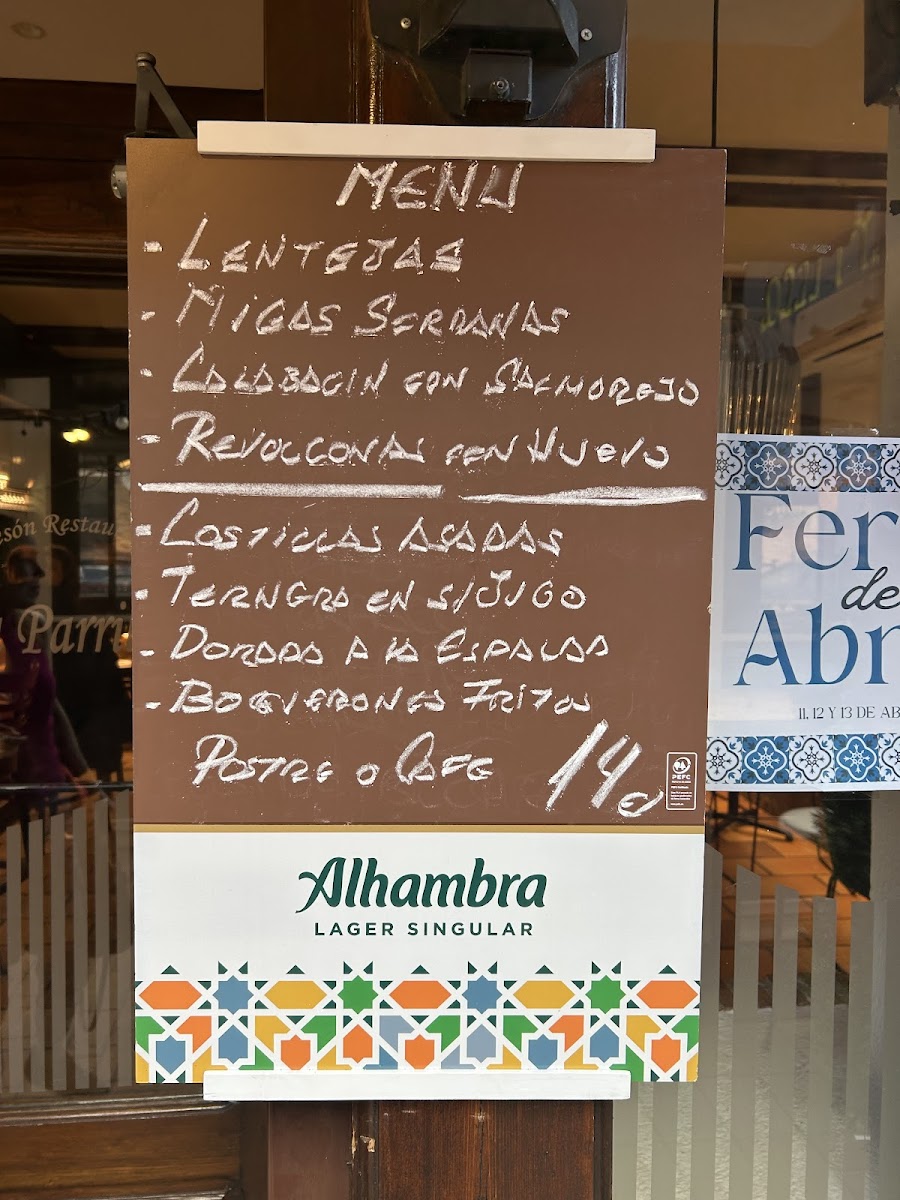 MENU
- LENTEJAS
- MIGAS SERRANAS
- CALABACIN CON SALMOREJO
- REVOLCONAS CON HUEVO
- COSTILLAS ASADAS
- TERNERA EN S/JUGO
- DORADA A LA ESPALDA
- BOQUERONES FRITOS
POSTRE O CAFE 14€
PEFC
Alhambra
LAGER SINGULAR
esón Restau
Parri
Fer
de
Abr
11, 12 Y 13 DE AB